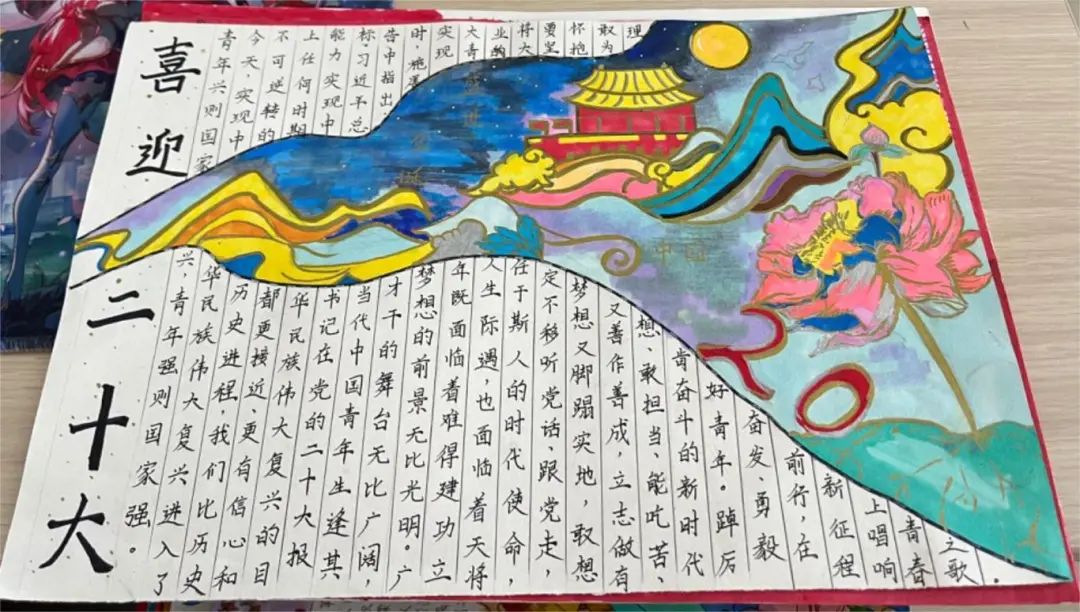 喜迎二十大
青年兴则国家兴,青年强则国家强。
今天,实现中华民族伟大复兴进入了
不可逆转的历史进程,我们比历史
上任何时期都更接近、更有信心和
能力实现中华民族伟大复兴的目
标。习近平总书记在党的二十大报
告中指出当代中国青年生逢其
时,施展才干的舞台无比广阔,
实现梦想的前景无比光明。广
大青年既面临着难得建功立
业的人生际遇,也面临着天将
将大任于斯人的时代使命,
要坚定不移听党话、跟党走,
怀抱梦想又脚踏实地,敢想
敢为又善作善成,立志做有
理想、敢担当、能吃苦、
肯奋斗的新时代
好青年。踔厉
奋发、勇毅
前行,在
新征程
上唱响
青春
之歌。
中国